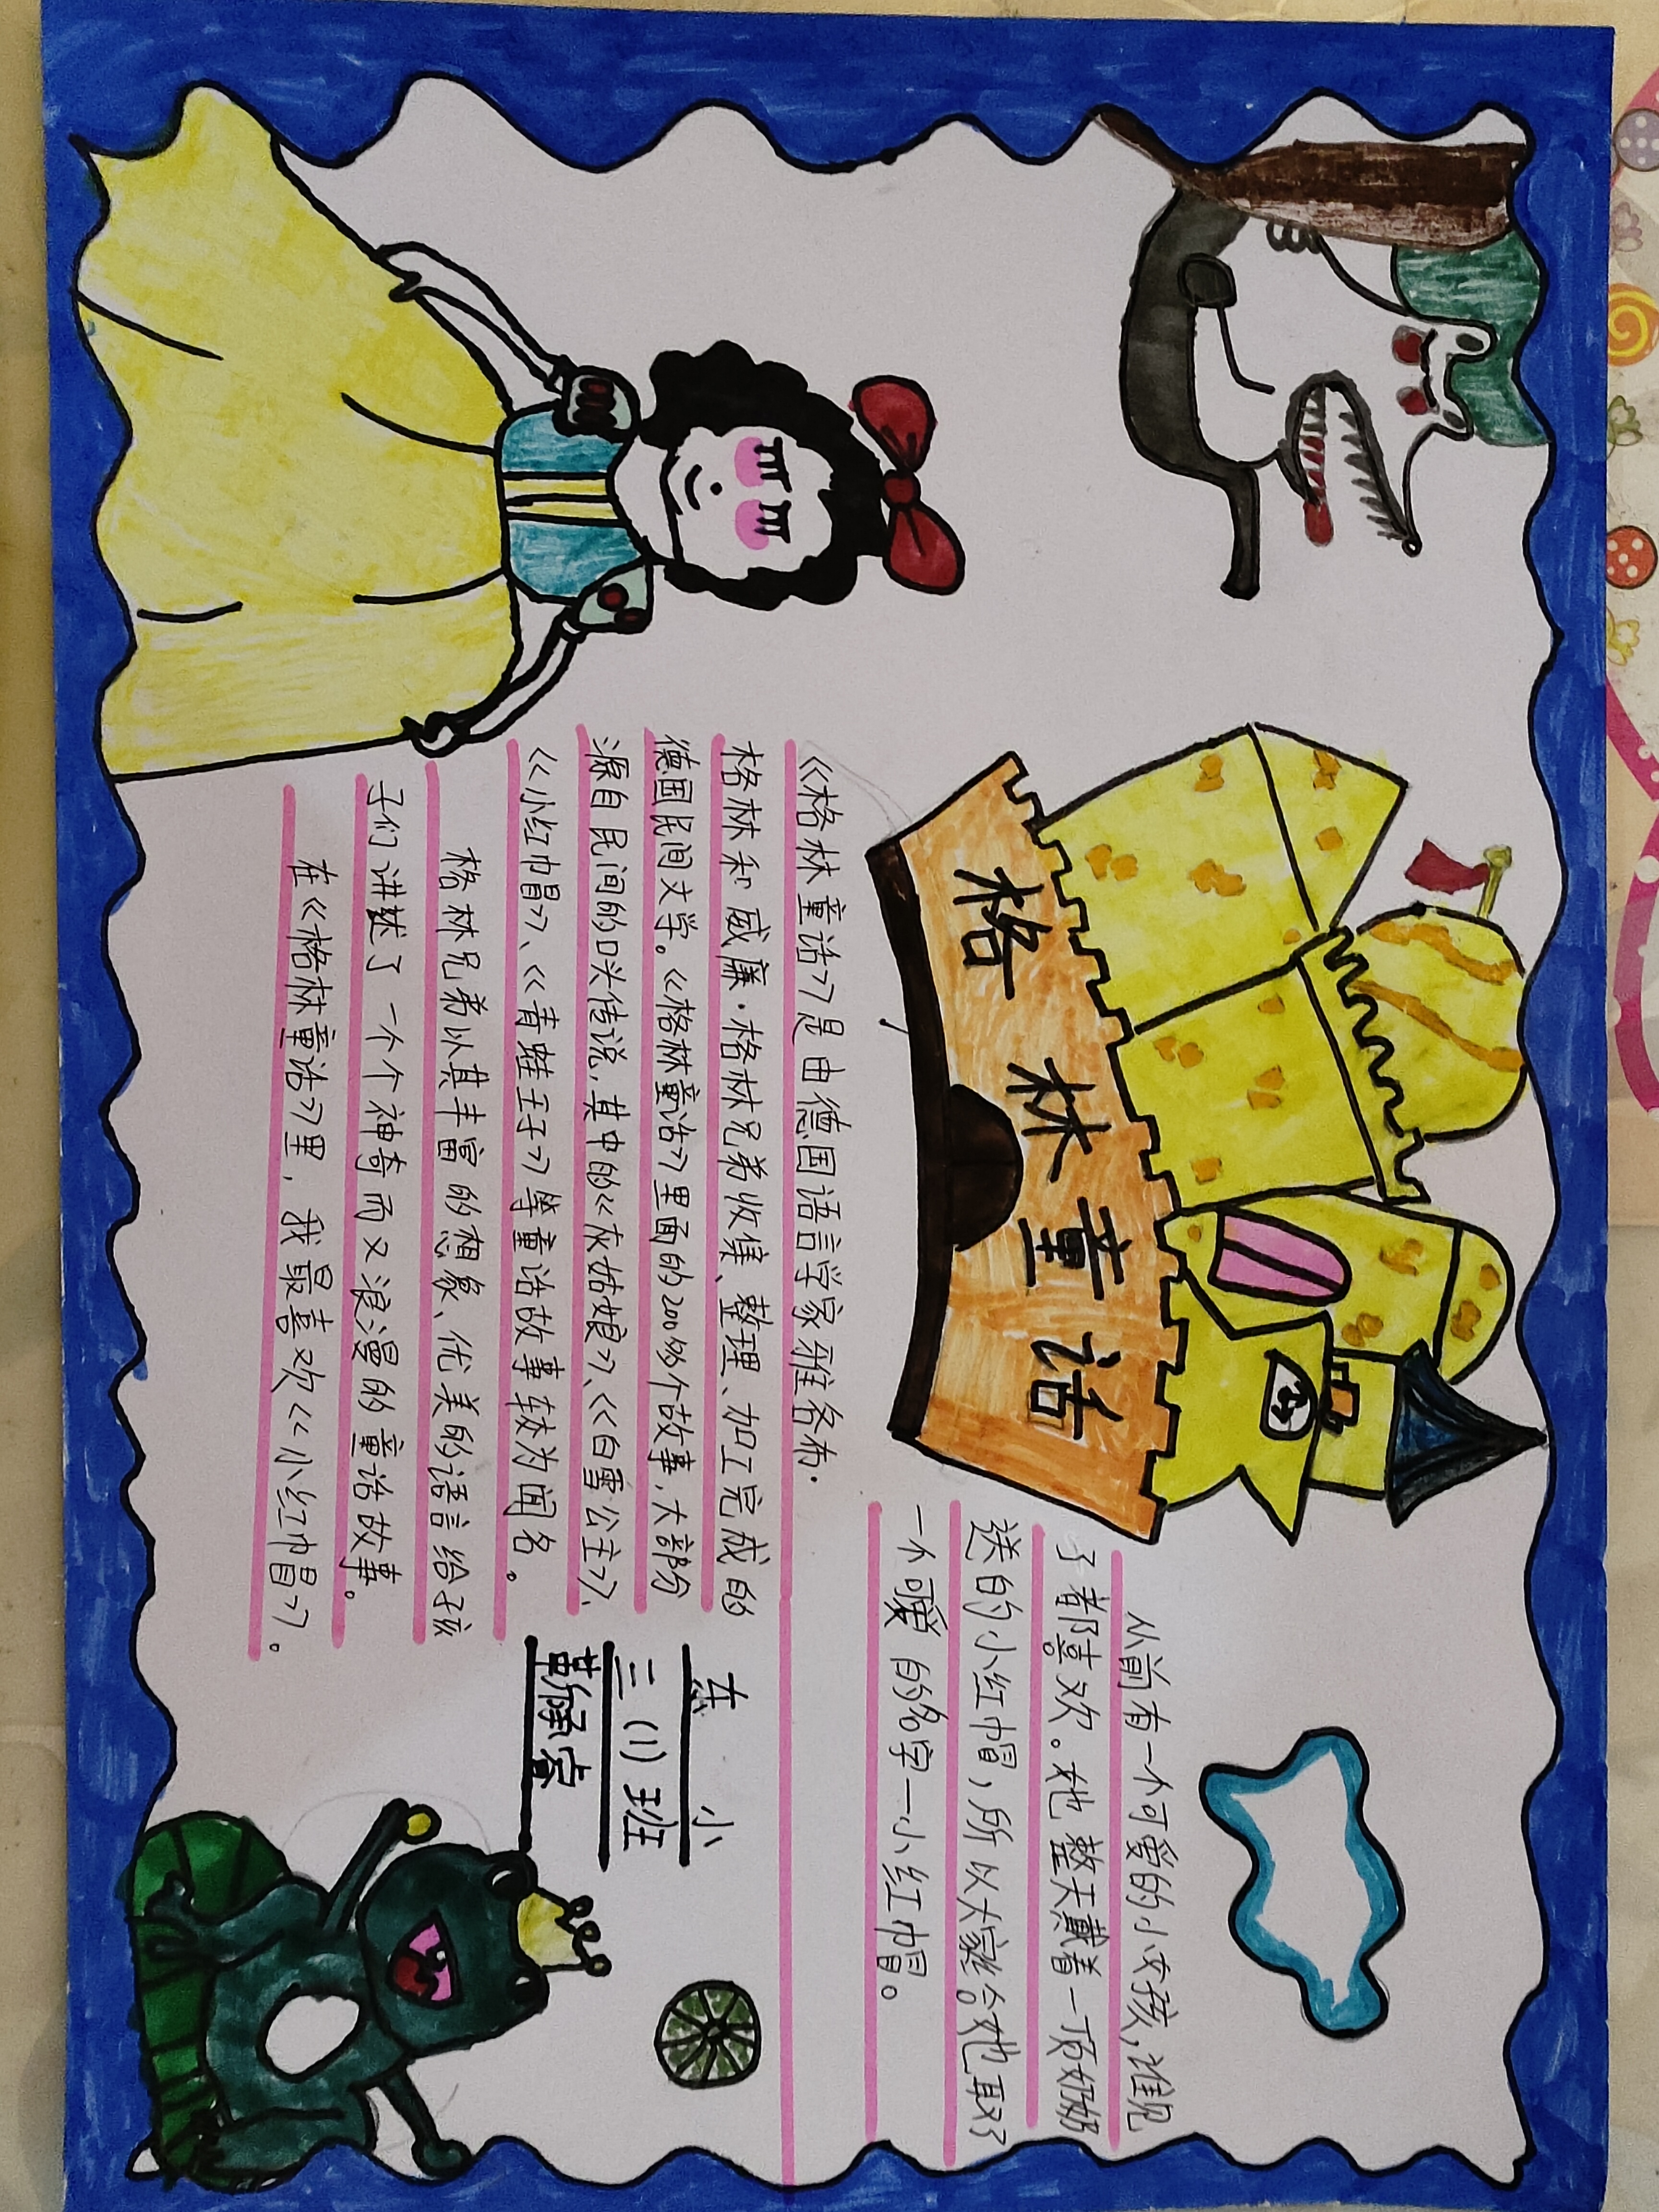 格林童话
《格林童话》是由德国语言学家雅各布·
格林和威廉·格林兄弟收集、整理、加工完成的
德国民间文学。《格林童话》里面的200多个故事,大部分
源自民间的口头传说,其中的《灰姑娘》、《白雪公主》、
《小红帽》、《青蛙王子》等童话故事较为闻名。
格林兄弟以其丰富的想象、优美的语言给孩
子们讲述了一个个神奇而又浪漫的童话故事。
在《格林童话》里,我最喜欢《小红帽》。
从前有一个可爱的小女孩,谁见
了都喜欢。她整天戴着一顶奶奶
送的小红帽,所以大家给她取了
一个可爱的名字—小红帽。
小
三(1)班